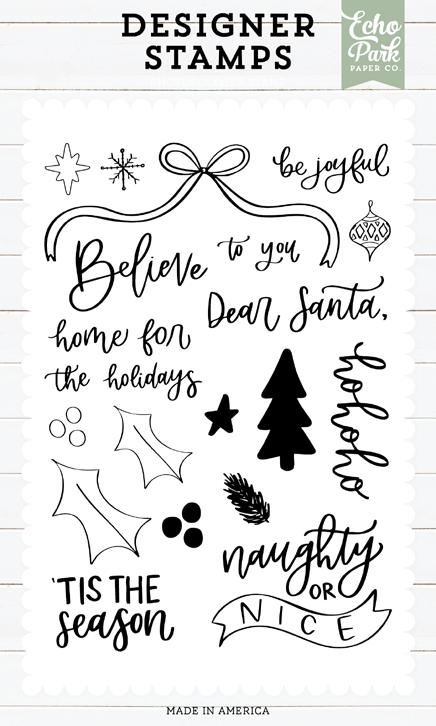 DESIGNER
STAMPS
Echo
Park
PAPER CO.
be joyful
Believe
to you
Dear Santa,
home for
the holidays
hohoho
naughty
OR
NICE
'TIS THE
season
MADE IN AMERICA